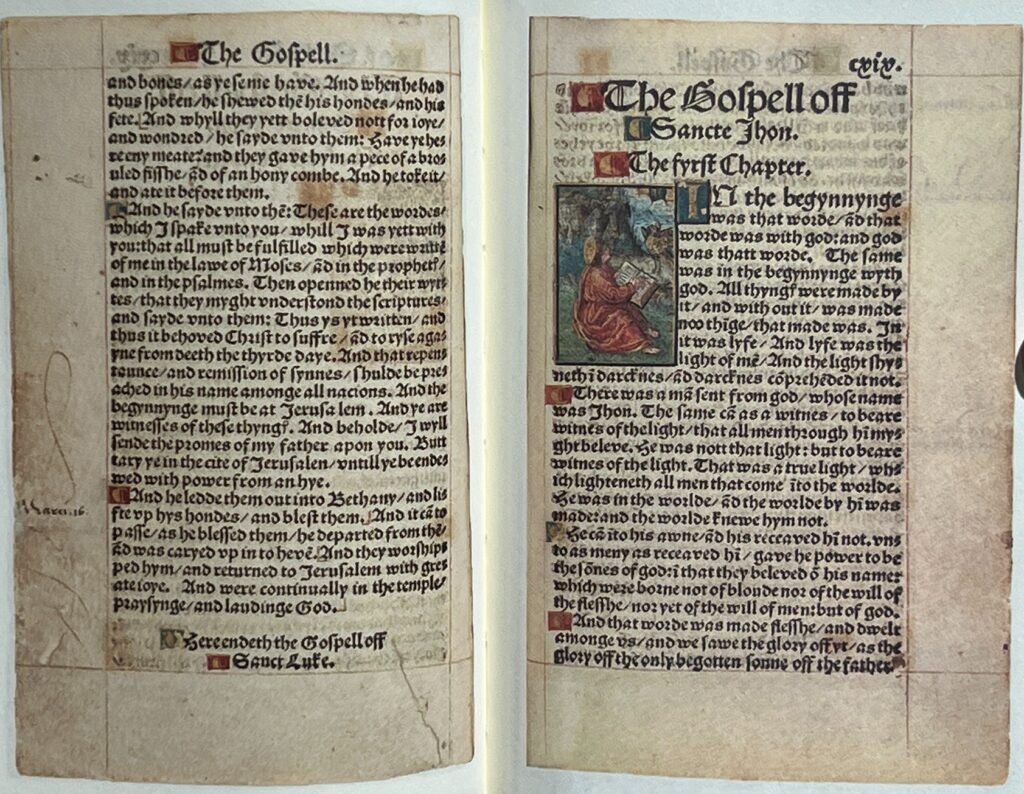 The Gospell.
and bones/as ye se me have. And when he had
thus spoken/he shewed thē his hondes/and his
fete. And whyll they yett beleved nott for ioye/
and wondred/he sayde vnto them: Have ye he-
re eny meate? and they gave hym a pece of a bro-
yled fisshe/ād of an hony combe. And he toke it/
and ate it before them.
And he sayde vnto thē: These are the wordes/
which I spake vnto you/whill I was yett with
you: that all must be fulfilled which were writtē
of me in the lawe of Moses/ād in the prophetꝭ/
and in the psalmes. Then openned he their wyt-
tes/that they myght vnderstond the scriptures/
and sayde vnto them: Thus ys yt written/and
thus it behoved Christ to suffre/ād to ryse aga-
yne from deeth the thyrde daye. And that repen-
taunce/and remission of synnes/shulde be pre-
ached in his name amonge all nacions. And the
begynnynge must be at Jerusalem. And ye are
witnesses of these thyngꝭ. And beholde/J wyll
sende the promes of my father apon you. Butt
tary ye in the cite of Jerusalen/vntill ye be ende-
wed with power from an hye.
And he ledde them out into Bethany/and lif-
te vp hys hondes/and blest them. And it cā to
passe/as he blessed them/he departed from thē/
ād was caryed vp in to hevē. And they worship-
ped hym/and returned to Jerusalem with gre-
ate ioye. And were continually in the temple/
praysynge/and laudinge God.
Here endeth the Gospell off
Sanct Luke.
cxix.
The Gospell off
Sancte Jhon.
The fyrst Chapter.
IN the begynnynge
was that worde/ād that
worde was with god: and god
was thatt worde. The same
was in the begynnynge wyth
god. All thyngꝭ were made by
it/and with out it/was made
noo thīge/that made was. In
it was lyfe/And lyfe was the
light of mē/And the light shy-
neth ī darcknes/ād darcknes cōprehēded it not.
There was a mā sent from god/whose name
was Jhon. The same cā as a witnes/to beare
witnes of the light/that all men through hī my-
ght beleve. He was nott that light: but to beare
witnes of the light. That was a true light/wh-
ich lighteneth all men that come īto the worlde.
He was in the worlde/ād the worlde by hī was
made: and the worlde knewe hym not.
He cā īto his awne/ād his receaved hī not. vn-
to as meny as receaved hī/gave he power to be
the sōnes of god: ī that they beleved ō his name:
which were borne not of bloude nor of the will of
the flesshe/nor yet of the will of men: but of god.
And that worde was made flesshe/and dwelt
amonge vs/and we sawe the glory off yt/as the
glory off the only begotten sonne off the father/